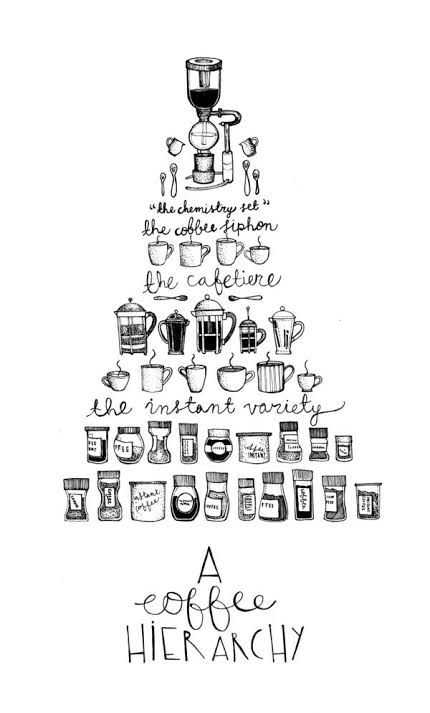 "the chemistry set"
the coffee siphon
the cafetiere
the instant variety
coffee
instant
instant
coffee
A
coffee
HIERARCHY